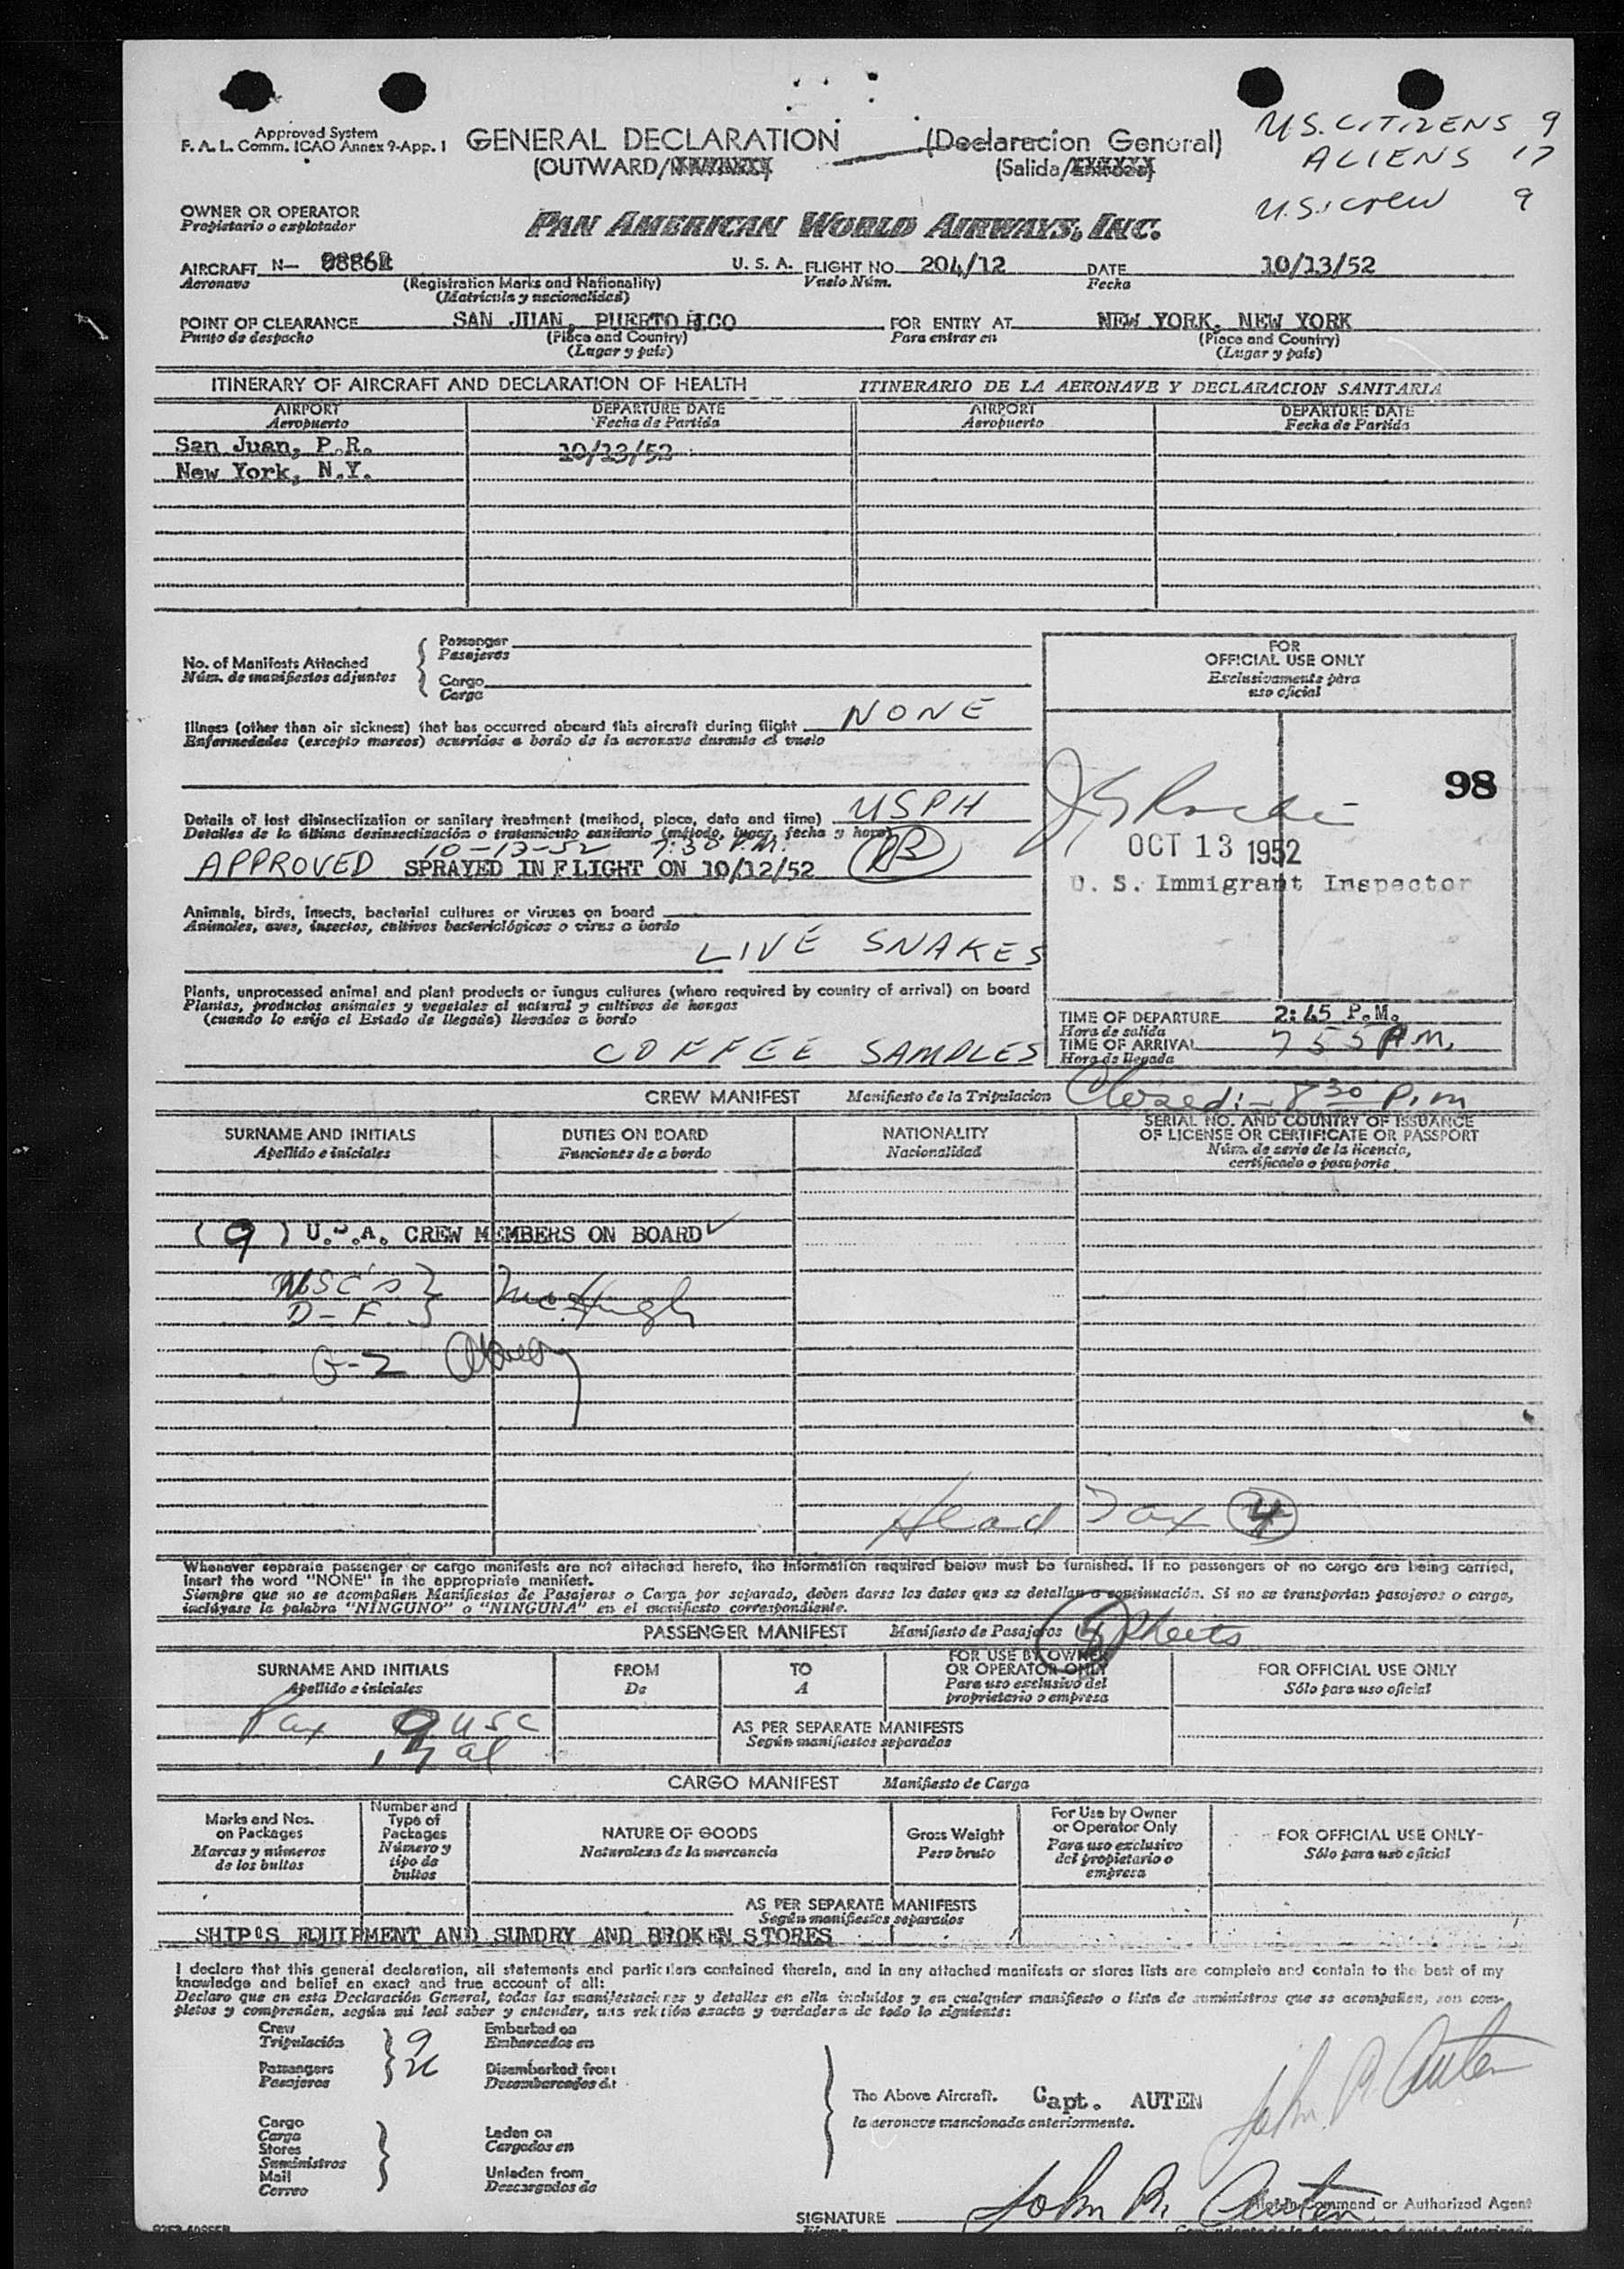 Approved System
F. A. L. Comm. ICAO Annex 9-App. 1
GENERAL DECLARATION (Declaracion General)
(OUTWARD/ (Salida/
U.S. CITIZENS 9
ALIENS 17
U.S. crew 9
OWNER OR OPERATOR
Propietario o explotador
PAN AMERICAN WORLD AIRWAYS, INC.
AIRCRAFT N- U. S. A. FLIGHT NO. 204/12 DATE 10/13/52
Aeronave (Registration Marks and Nationality) Vuelo Núm. Fecha
(Matricula y nacionalidad)
POINT OF CLEARANCE SAN JUAN, PUERTO RICO FOR ENTRY AT NEW YORK, NEW YORK
Punto de despacho (Place and Country) Para entrar en (Place and Country)
(Lugar y país) (Lugar y país)
ITINERARY OF AIRCRAFT AND DECLARATION OF HEALTH ITINERARIO DE LA AERONAVE Y DECLARACION SANITARIA
AIRPORT DEPARTURE DATE AIRPORT DEPARTURE DATE
Aeropuerto Fecha de Partida Aeropuerto Fecha de Partida
San Juan, P.R. 10/13/52
New York, N.Y.
No. of Manifests Attached
Núm. de manifiestos adjuntos
Passenger
Pasajeros
Cargo
Carga
Illness (other than air sickness) that has occurred aboard this aircraft during flight NONE
Enfermedades (excepto mareos) ocurridas a bordo de la aeronave durante el vuelo
Details of last disinsectization or sanitary treatment (method, place, date and time) USPH
Detalles de la última desinsectización o tratamiento sanitario (método, lugar, fecha y hora)
10-13-52 7:30 P.M.
APPROVED SPRAYED IN FLIGHT ON 10/12/52
Animals, birds, insects, bacterial cultures or viruses on board
Animales, aves, insectos, cultivos bacteriológicos o virus a bordo
LIVE SNAKES
Plants, unprocessed animal and plant products or fungus cultures (where required by country of arrival) on board
Plantas, productos animales y vegetales al natural y cultivos de hongos
(cuando lo exija el Estado de llegada) llevados a bordo
COFFEE SAMPLES
FOR
OFFICIAL USE ONLY
Exclusivamente para
uso oficial
98
OCT 13 1952
U. S. Immigrant Inspector
TIME OF DEPARTURE 2:45 P.M.
Hora de salida
TIME OF ARRIVAL 755 P.M.
Hora de llegada
Closed:- 830 P.m
CREW MANIFEST Manifiesto de la Tripulacion
SURNAME AND INITIALS DUTIES ON BOARD NATIONALITY SERIAL NO. AND COUNTRY OF ISSUANCE
OF LICENSE OR CERTIFICATE OR PASSPORT
Apellido e iniciales Funciones de a bordo Nacionalidad Núm. de serie de la licencia,
certificado o pasaporte
(9) U.S.A. CREW MEMBERS ON BOARD ✓
McHugh
D-F
G-2
Head Tax 4
Whenever separate passenger or cargo manifests are not attached hereto, the information required below must be furnished. If no passengers or no cargo are being carried,
insert the word "NONE" in the appropriate manifest.
Siempre que no se acompañen Manifiestos de Pasajeros o Carga por separado, deben darse los datos que se detallan a continuación. Si no se transportan pasajeros o carga,
inclúyase la palabra "NINGUNO" o "NINGUNA" en el manifiesto correspondiente.
PASSENGER MANIFEST Manifiesto de Pasajeros Sheets
SURNAME AND INITIALS FROM TO FOR USE BY OWNER
OR OPERATOR ONLY FOR OFFICIAL USE ONLY
Apellido e iniciales De A Para uso exclusivo del
propietario o empresa Sólo para uso oficial
Pax 9 USC
17 al
AS PER SEPARATE MANIFESTS
Según manifiestos separados
CARGO MANIFEST Manifiesto de Carga
Marks and Nos.
on Packages
Marcas y números
de los bultos
Number and
Type of
Packages
Número y
tipo de
bultos
NATURE OF GOODS
Naturaleza de la mercancia
Gross Weight
Peso bruto
For Use by Owner
or Operator Only
Para uso exclusivo
del propietario o
empresa
FOR OFFICIAL USE ONLY
Sólo para uso oficial
AS PER SEPARATE MANIFESTS
Según manifiestos separados
SHIP'S EQUIPMENT AND SUNDRY AND BROKEN STORES
I declare that this general declaration, all statements and particulars contained therein, and in any attached manifests or stores lists are complete and contain to the best of my
knowledge and belief an exact and true account of all:
Declaro que en esta Declaración General, todas las manifestaciones y detalles en ella incluidos y en cualquier manifiesto o lista de suministros que se acompañen, son com-
pletos y comprenden, según mi leal saber y entender, una relación exacta y verdadera de todo lo siguiente:
Crew 9 Embarked on
Tripulación Embarcados en
Passengers 26 Disembarked from
Pasajeros Desembarcados de
The Above Aircraft. Capt. AUTEN
la aeronave mencionada anteriormente.
John R. Auten
Cargo
Carga
Stores
Suministros
Mail
Correo
Laden on
Cargados en
Unladen from
Descargados de
SIGNATURE John R. Auten
Pilot in Command or Authorized Agent